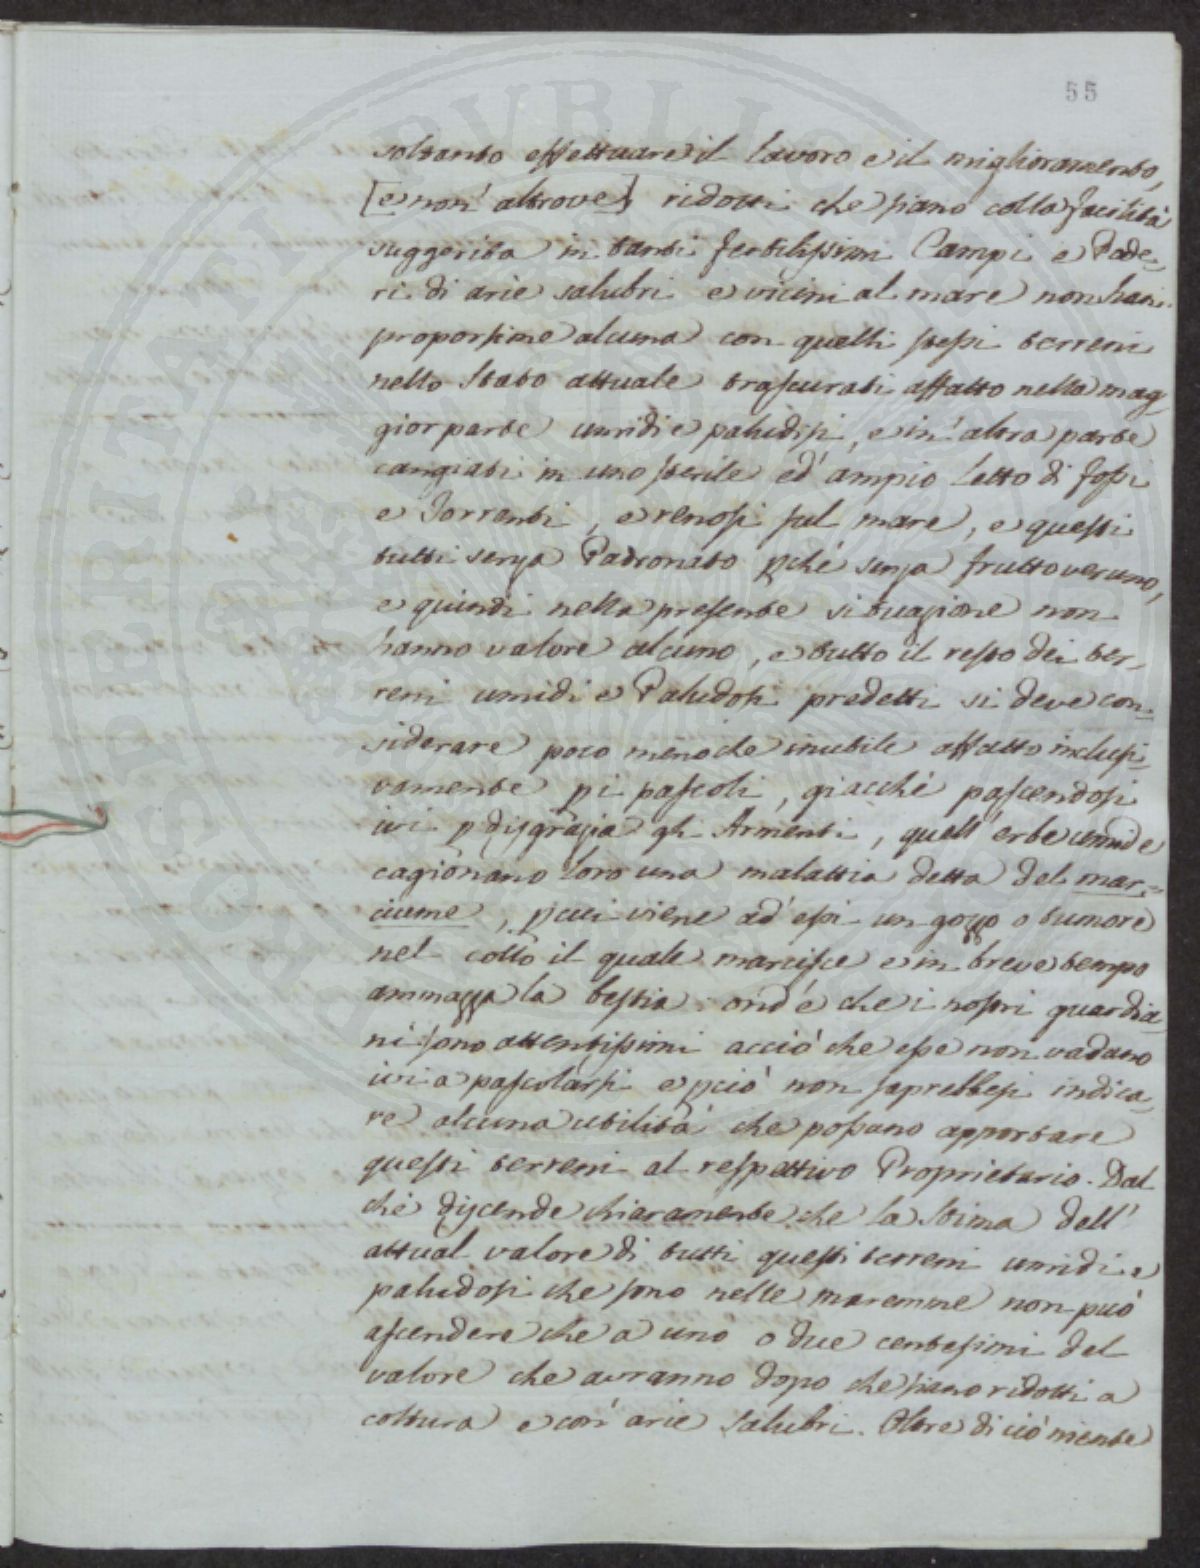 55
soltanto effettuare il lavoro e il miglioramento,
[e non altrove] ridotti che siano colla facilità
suggerita in tanti fertilissimi Campi e Pode-
ri di arie salubri e vicini al mare non han
proporzione alcuna con quelli stessi terreni
nello stato attuale trascurati affatto nella mag
gior parte umidi e paludosi, e in altra parte
cangiati in uno sterile ed ampio letto di fossi
e Torrenti, e renosi sul mare, e questi
tutti senza Padronato pché senza frutto veruno,
e quindi nella presente situazione non
hanno valore alcuno, e tutto il resto dei ter-
reni umidi e Paludosi predetti si deve con-
siderare poco meno che inutile affatto inclusi
vamente pi pascoli, giacché pascendosi
ivi p disgrazia gli Armenti, quell'erbe umide
cagionano loro una malattia detta del mar-
ciume, p cui viene ad essi un gozzo o tumore
nel collo il quale marcisce e in breve tempo
ammazza la bestia: ond'é che i nostri guardia
ni sono attentissimi acciò che esse non vadano
ivi a pascolarsi e pciò non saprebbesi indica-
re alcuna utilità che possano apportare
questi terreni al respettivo Proprietario. Dal
ché discende chiaramente che la stima dell'
attual valore di tutti questi terreni umidi e
paludosi che sono nelle maremme non può
ascendere che a uno o due centesimi del
valore che avranno dopo che siano ridotti a
coltura e con arie salubri. Oltre di ciò niente